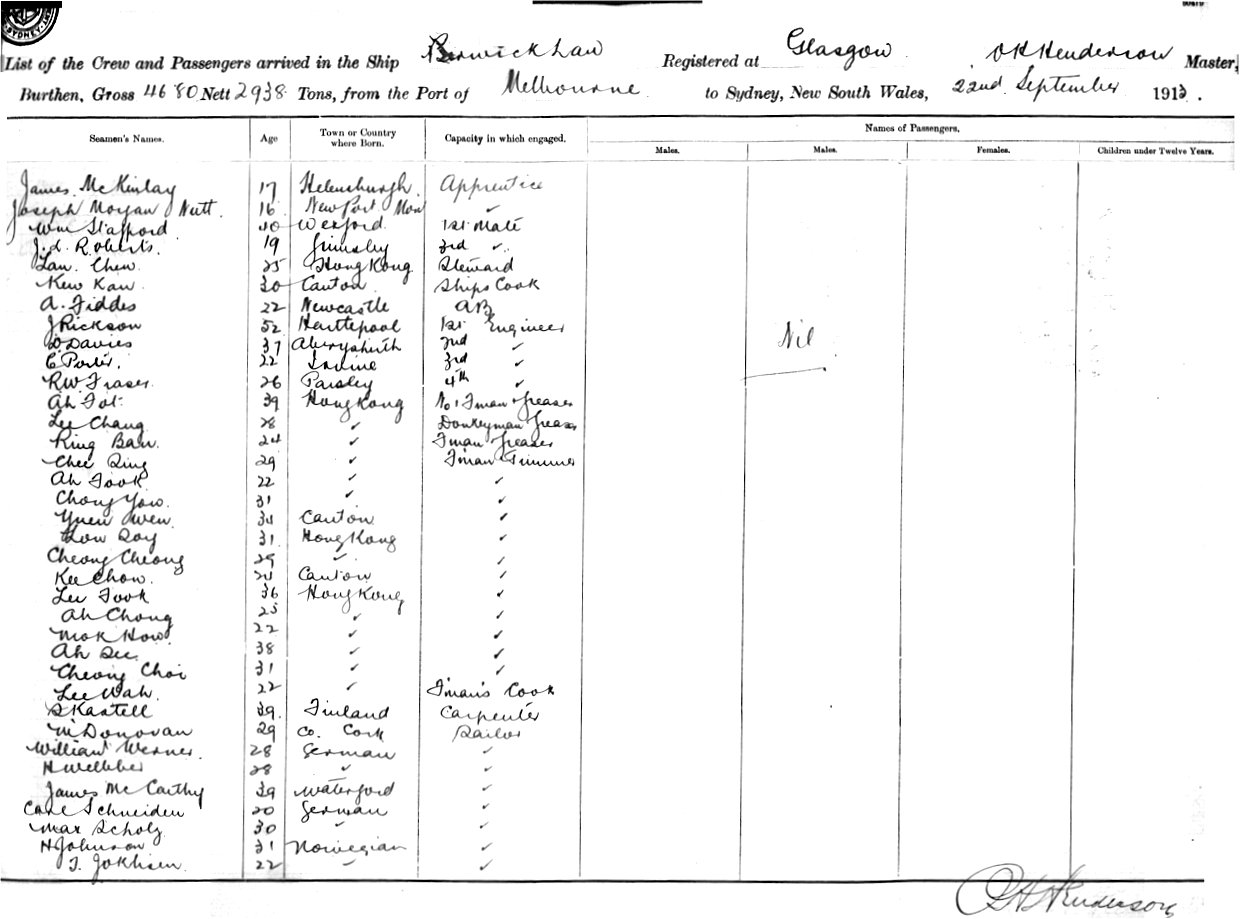 SYDNEY
List of the Crew and Passengers arrived in the Ship Berwick Law Registered at Glasgow O H Henderson Master,
Burthen, Gross 4680 Nett 2938 Tons, from the Port of Melbourne to Sydney, New South Wales, 22nd September 1913.
Seamen's Names. Age Town or Country where Born. Capacity in which engaged. Names of Passengers.
Males. Males. Females. Children under Twelve Years.
James McKinlay 17 Helensburgh Apprentice
Joseph Morgan Nutt 16 Newport Mon ✓
Wm Stafford 40 Wexford 1st Mate
J.L. Roberts 19 Grimsby 3rd ✓
Lau Chew 25 Hong Kong Steward
Kew Kau 30 Canton Ships Cook
A. Fiddes 22 Newcastle AB
J Rickson 52 Hartlepool 1st Engineer
D Davies 37 Aberystwith 2nd ✓ Nil
C Porter 22 Irvine 3rd ✓
RW Fraser 26 Paisley 4th ✓
Ah Fat 39 Hong Kong No 1 Fman Greaser
Lee Chang 28 ✓ Donkeyman Greaser
King Bau 24 ✓ Fman Greaser
Chee Sing 29 ✓ Fman Trimmer
Ah Fook 22 ✓ ✓
Chong Yow 31 ✓ ✓
Yuen Wen 34 Canton ✓
Low Soy 31 Hong Kong ✓
Cheong Cheong 29 ✓ ✓
Kee Chow Canton ✓
Lee Fook 36 Hong Kong ✓
Ah Chong 25 ✓ ✓
Mok How 22 ✓ ✓
Ah See 38 ✓ ✓
Cheong Choi 31 ✓ ✓
Lee Wah 22 ✓ Fman's Cook
S Kastell 39 Finland Carpenter
M Donovan 29 Co. Cork Sailor
William Werner 28 German ✓
H 28 ✓ ✓
James McCarthy 39 Waterford ✓
Carl Schneider 20 German ✓
Max Scholz 30 ✓ ✓
H Johnson 31 Norwegian ✓
T. 22 ✓ ✓
O H Henderson